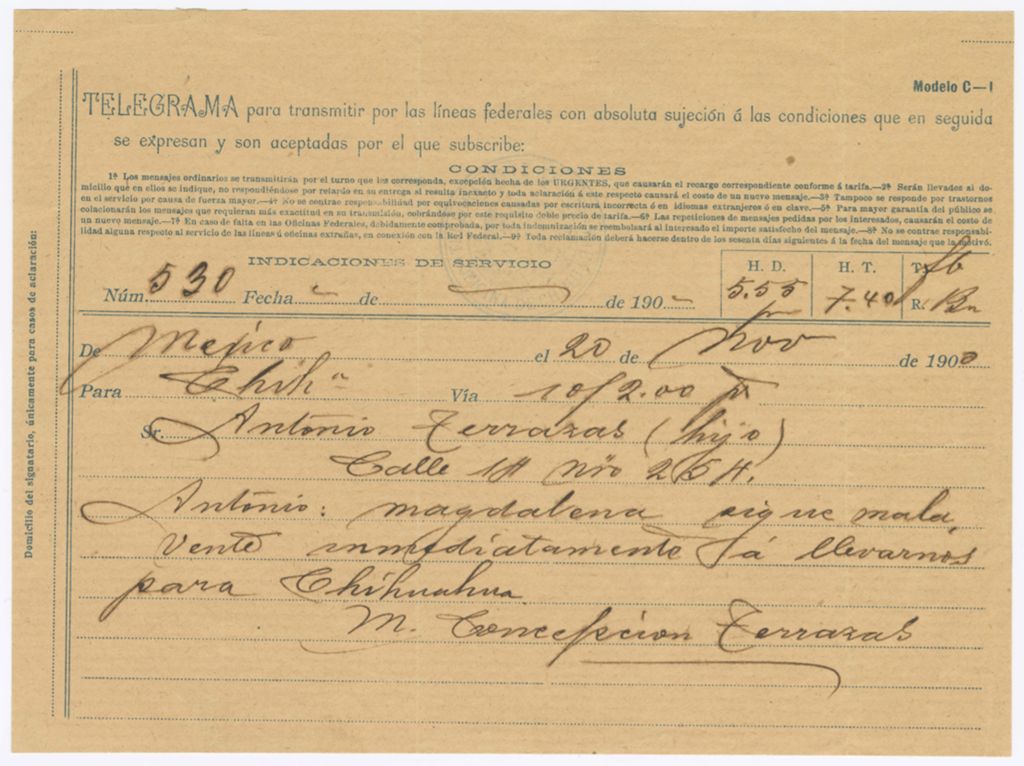 Modelo C—I
TELEGRAMA para transmitir por las líneas federales con absoluta sujeción á las condiciones que en seguida
se expresan y son aceptadas por el que subscribe:
CONDICIONES
1ª Los mensajes ordinarios se transmitirán por el turno que les corresponda, excepción hecha de los URGENTES, que causarán el recargo correspondiente conforme á tarifa.—2ª Serán llevados al do-
micilio que en ellos se indique, no respondiéndose por retardo en su entrega si resulta inexacto y toda aclaración á este respecto causará el costo de un nuevo mensaje.—3ª Tampoco se responde por trastornos
en el servicio por causa de fuerza mayor.—4ª No se contrae responsabilidad por equivocaciones causadas por escritura incorrecta ó en idiomas extranjeros ó en clave.—5ª Para mayor garantía del público se
colacionarán los mensajes que requieran más exactitud en su transmisión, cobrándose por este requisito doble precio de tarifa.—6ª Las repeticiones de mensajes pedidas por los interesados, causarán el costo de
un nuevo mensaje.—7ª En caso de falta en las Oficinas Federales, debidamente comprobada, por toda indemnización se reembolsará al interesado el importe satisfecho del mensaje.—8ª No se contrae responsabi-
lidad alguna respecto al servicio de las líneas ú oficinas extrañas, en conexión con la Red Federal.—9ª Toda reclamación deberá hacerse dentro de los sesenta días siguientes á la fecha del mensaje que la motivó.
INDICACIONES DE SERVICIO
Núm. 530 Fecha de de 190
H. D. 5.55
H. T. 7.40
T.
R. Bn
De Mejico el 20 de Nov de 1900
Para Chihª Vía 10/2.00
Sr. Antonio Terrazas (hijo)
Calle 14 Nro 254.
Antonio: magdalena sigue mala,
vente inmediatamente á llevarnos
para Chihuahua
M. Concepcion Terrazas
Domicilio del signatario, únicamente para casos de aclaración: